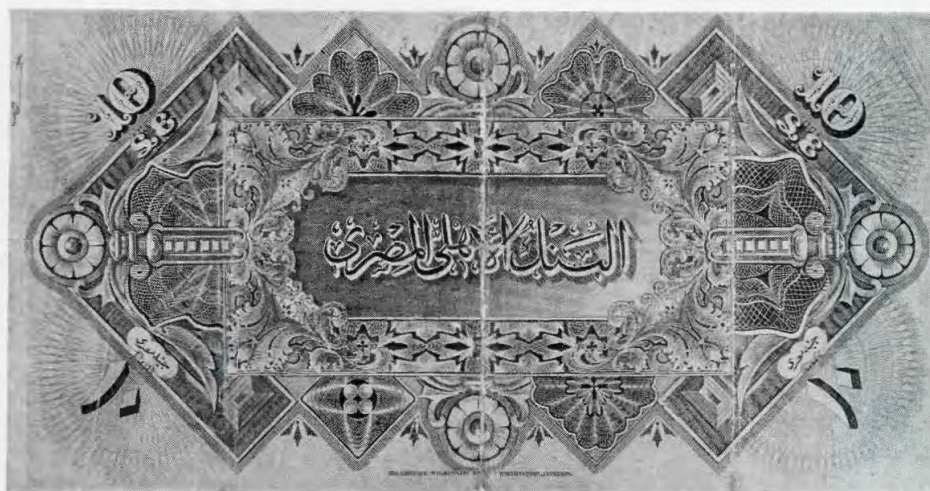 10
£.E.
10
£.E.
البنك الأهلى المصرى
جنيه مصرى
جنيه مصرى
١٠
١٠